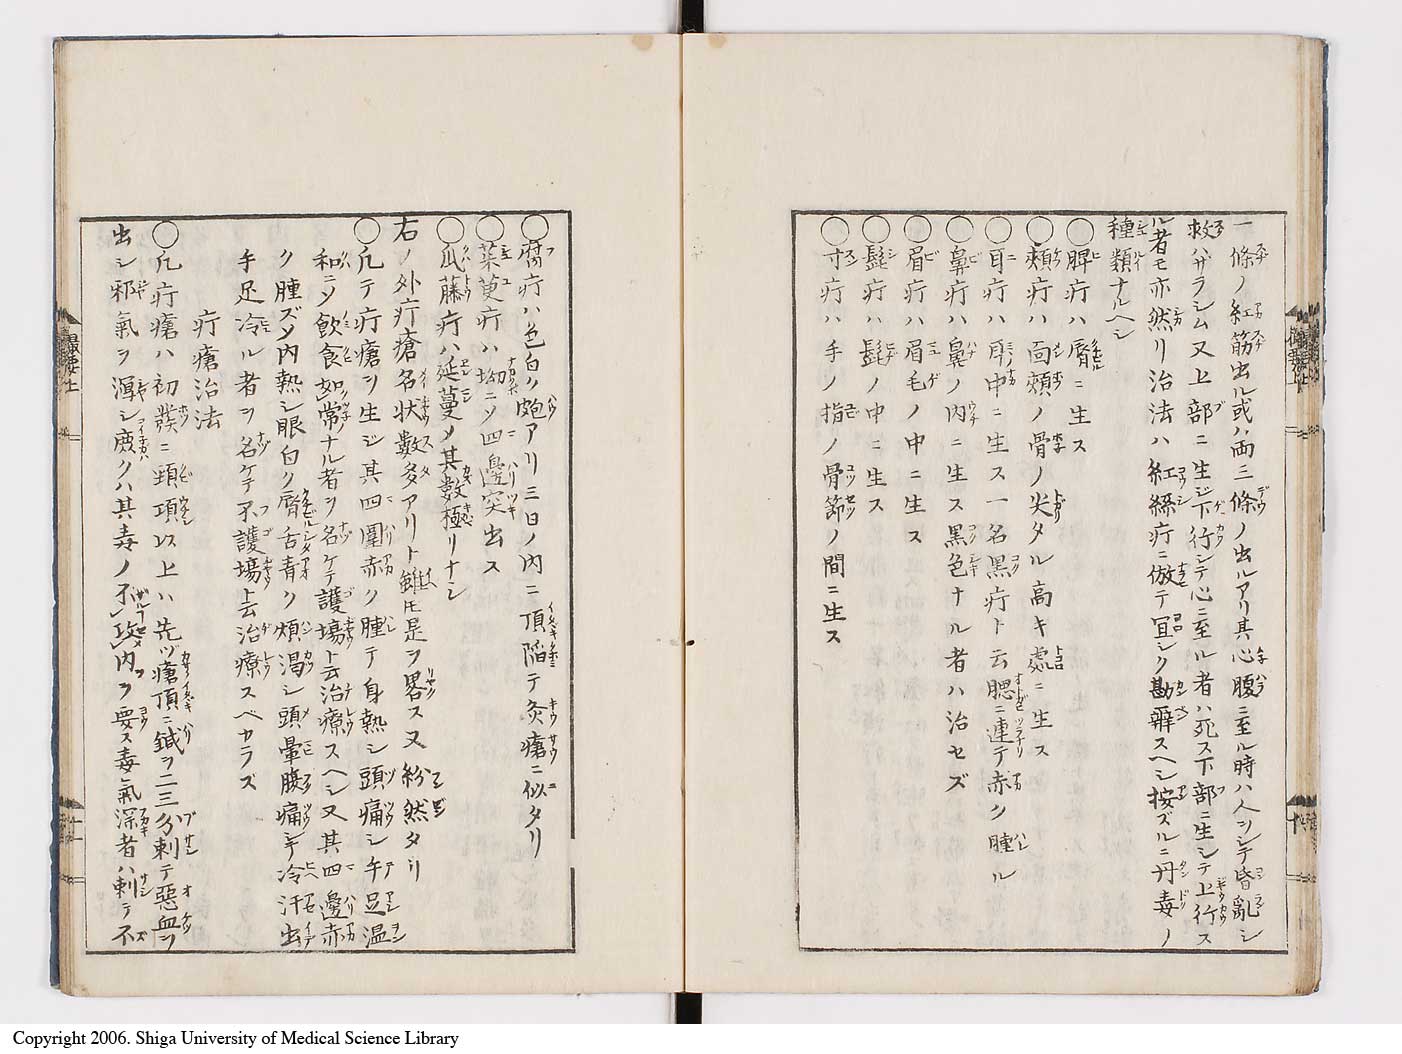 一條ノ紅筋出ル或ハ両三條ノ出ルアリ其心腹ニ至ル時ハ人ヲシテ昏亂シ
救バザラシム又上部ニ生ジ下行シテ心ニ至ル者ハ死ス下部ニ生シテ上行ス
ル者モ亦然リ治法ハ紅絲疔ニ倣テ宜シク斟酌スヘシ按ズルニ丹毒ノ
種類ナルヘシ
○脾疔ハ脣ニ生ス
○頰疔ハ面頰ノ骨ノ尖タル高キ處ニ生ス
○耳疔ハ耳中ニ生ス一名黒疔ト云腮ニ連テ赤ク腫ル
○鼻疔ハ鼻ノ内ニ生ス黒色ナル者ハ治セズ
○眉疔ハ眉毛ノ中ニ生ス
○髭疔ハ髭ノ中ニ生ス
○寸疔ハ手ノ指ノ骨節ノ間ニ生ス
○腐疔ハ色白ク皰アリ三日ノ内ニ頂陷テ灸瘡ニ似タリ
○茱萸疔ハ坳ニソ四邊突出ス
○瓜藤疔ハ延蔓ノ其數極リナシ
右ノ外疔瘡名状數多アリト雖モ是ヲ畧ス又紛然タリ
○凡テ疔瘡ヲ生ジ其四圍赤ク腫テ身熱シ頭痛シ手足温
和ニソ飲食如常ナル者ヲ名ケテ護場ト云治療スヘシ又其四邊赤
ク腫ズメ内熱シ眼白ク脣舌青ク煩渇シ頭暈腹痛シテ冷汗出
手足冷ル者ヲ名ケテ不護場ト云治療スベカラズ
疔瘡治法
○凡疔瘡ハ初發ニ頸項以上ハ先ヅ瘡頂ニ鍼ヲ二三分刺テ惡血ヲ
出シ邪氣ヲ瀉シ庶クハ其毒ノ不攻内ヲ要ス毒氣深者ハ刺テ不
撮要上
十
Copyright 2006. Shiga University of Medical Science Library